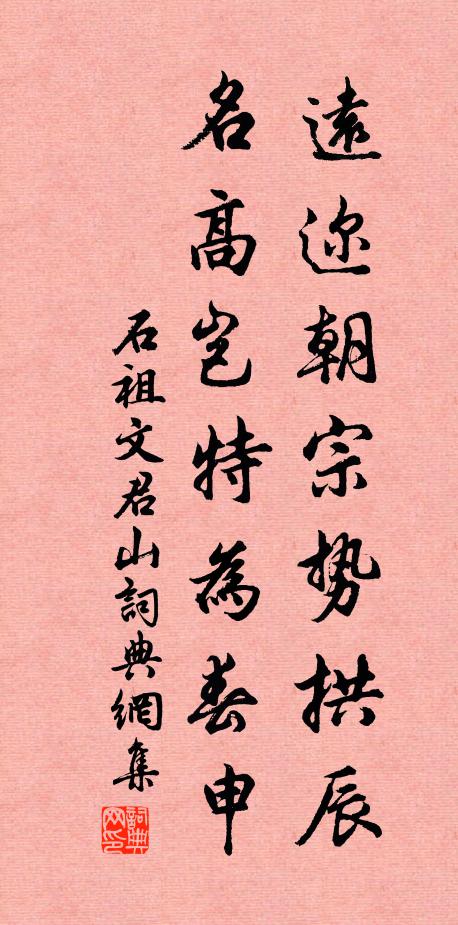 遠迩朝宗势拱辰
名高岂特為春申
石祖文君山詞典網集
詞典网印